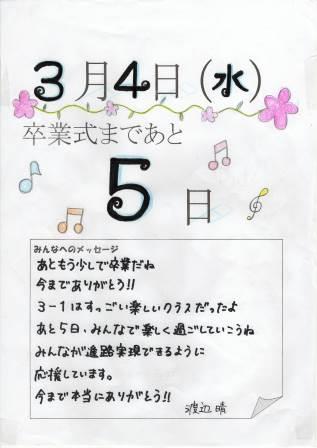 3月4日(水)
卒業式まであと
5日
みんなへのメッセージ
あともう少しで卒業だね
今までありがとう!!
3-1はすっごい楽しいクラスだったよ
あと5日、みんなで楽しく過ごしていこうね
みんなが進路実現できるように
応援しています。
今まで本当にありがとう!!
渡辺 晴